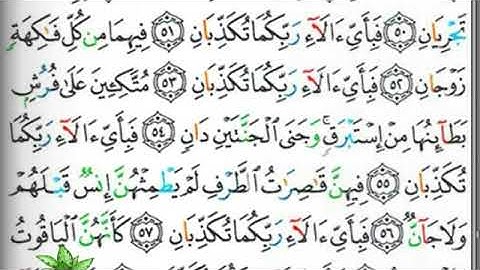 تَجْرِيَانِ ﴿٥٠﴾ فَبِأَيِّ ءَالَآءِ رَبِّكُمَا تُكَذِّبَانِ ﴿٥١﴾ فِيهِمَا مِن كُلِّ فَٰكِهَةٍ
زَوْجَانِ ﴿٥٢﴾ فَبِأَيِّ ءَالَآءِ رَبِّكُمَا تُكَذِّبَانِ ﴿٥٣﴾ مُتَّكِـِٔينَ عَلَىٰ فُرُشٍۭ
بَطَآئِنُهَا مِنْ إِسْتَبْرَقٍۚ وَجَنَى ٱلْجَنَّتَيْنِ دَانٍ ﴿٥٤﴾ فَبِأَيِّ ءَالَآءِ رَبِّكُمَا
تُكَذِّبَانِ ﴿٥٥﴾ فِيهِنَّ قَٰصِرَٰتُ ٱلطَّرْفِ لَمْ يَطْمِثْهُنَّ إِنسٌ قَبْلَهُمْ
وَلَا جَآنٌّ ﴿٥٦﴾ فَبِأَيِّ ءَالَآءِ رَبِّكُمَا تُكَذِّبَانِ ﴿٥٧﴾ كَأَنَّهُنَّ ٱلْيَاقُوتُ